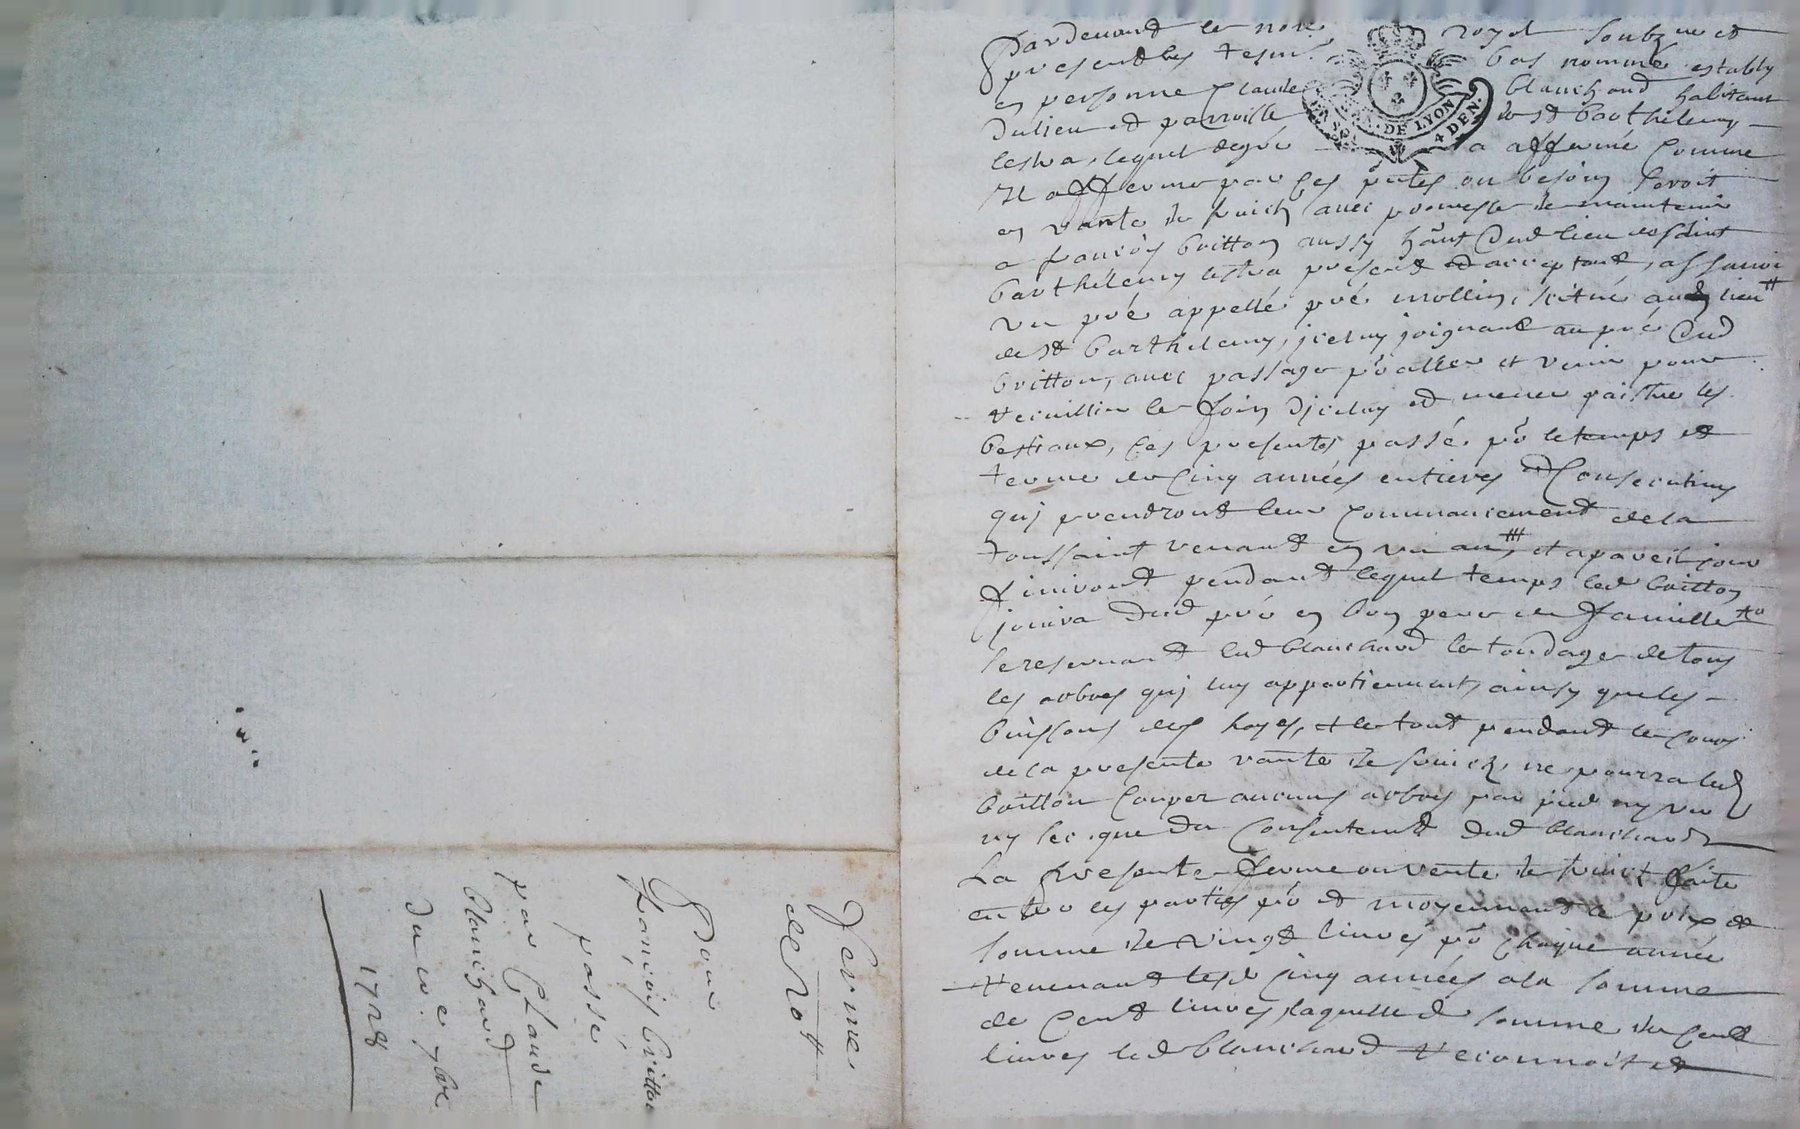 Pardevand le not.e royal soubzné et
presend les tesm. bas nommé establly
en personne Claude blanchard habitant
du lieu et parroisse de St barthelemy
lestra, lequel de gré a affermé comme
Il afferme par ces pntes ou besoin seroit
en vante de fruicts avec promesse de maintenir
a francois britton aussy hânt dud lieu de saint
barthelemy lestra present et acceptant, assavoir
un pré appellé pré mollin, scitué aud lieu
de St barthelemy, jceluy joignant au pré dud
britton, avec passage po.r aller et venir pour
recuillir le foin djceluy et mener paistre les
bestiaux, ces presentes passé po.r le temps et
terme de cinq années entieres et consecutives
quj prendront leur commancement de la
toussaint venant en un an, et a pareil jour
finiront pendant lequel temps led britton
jouira dud pré en bon pere de famille
se reservant led blanchard le tondage de tous
les arbres quj luy appartiennent, ainsy que les
buissons des hayes, et le tout pendant le cours
de la presente vante de fruicts, ne pourra led
britton couper aucuns arbres par pied ny vu
ny sec que du consentemt dud blanchard
La presente ferme ou vente de fruict faite
entre les parties po.r et moyennant le prix et
somme de vingt livres po.r chaque année
revenant lesd cinq années a la somme
de cent livres laquelle d somme de cent
livres led blanchard reconnoit et
ferme
de 20#
Pour
francois britton
passé
par Claude
blanchard
du xbre
1728
DE LYON
4 DEN.